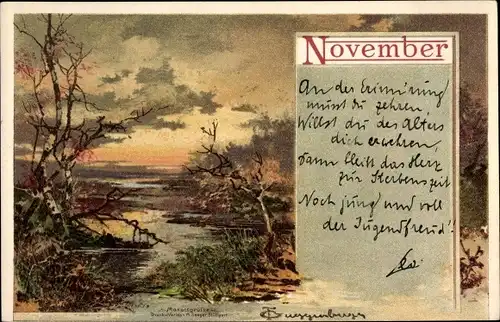 November
An der Erinnrung
musst du zehren,
Willst du des Alters
dich erwehren,
Dann bleibt das Herz
zur Sterbenszeit
Noch jung und voll
der Jugendfreud'!
Monatsgrüße
Guggenberger